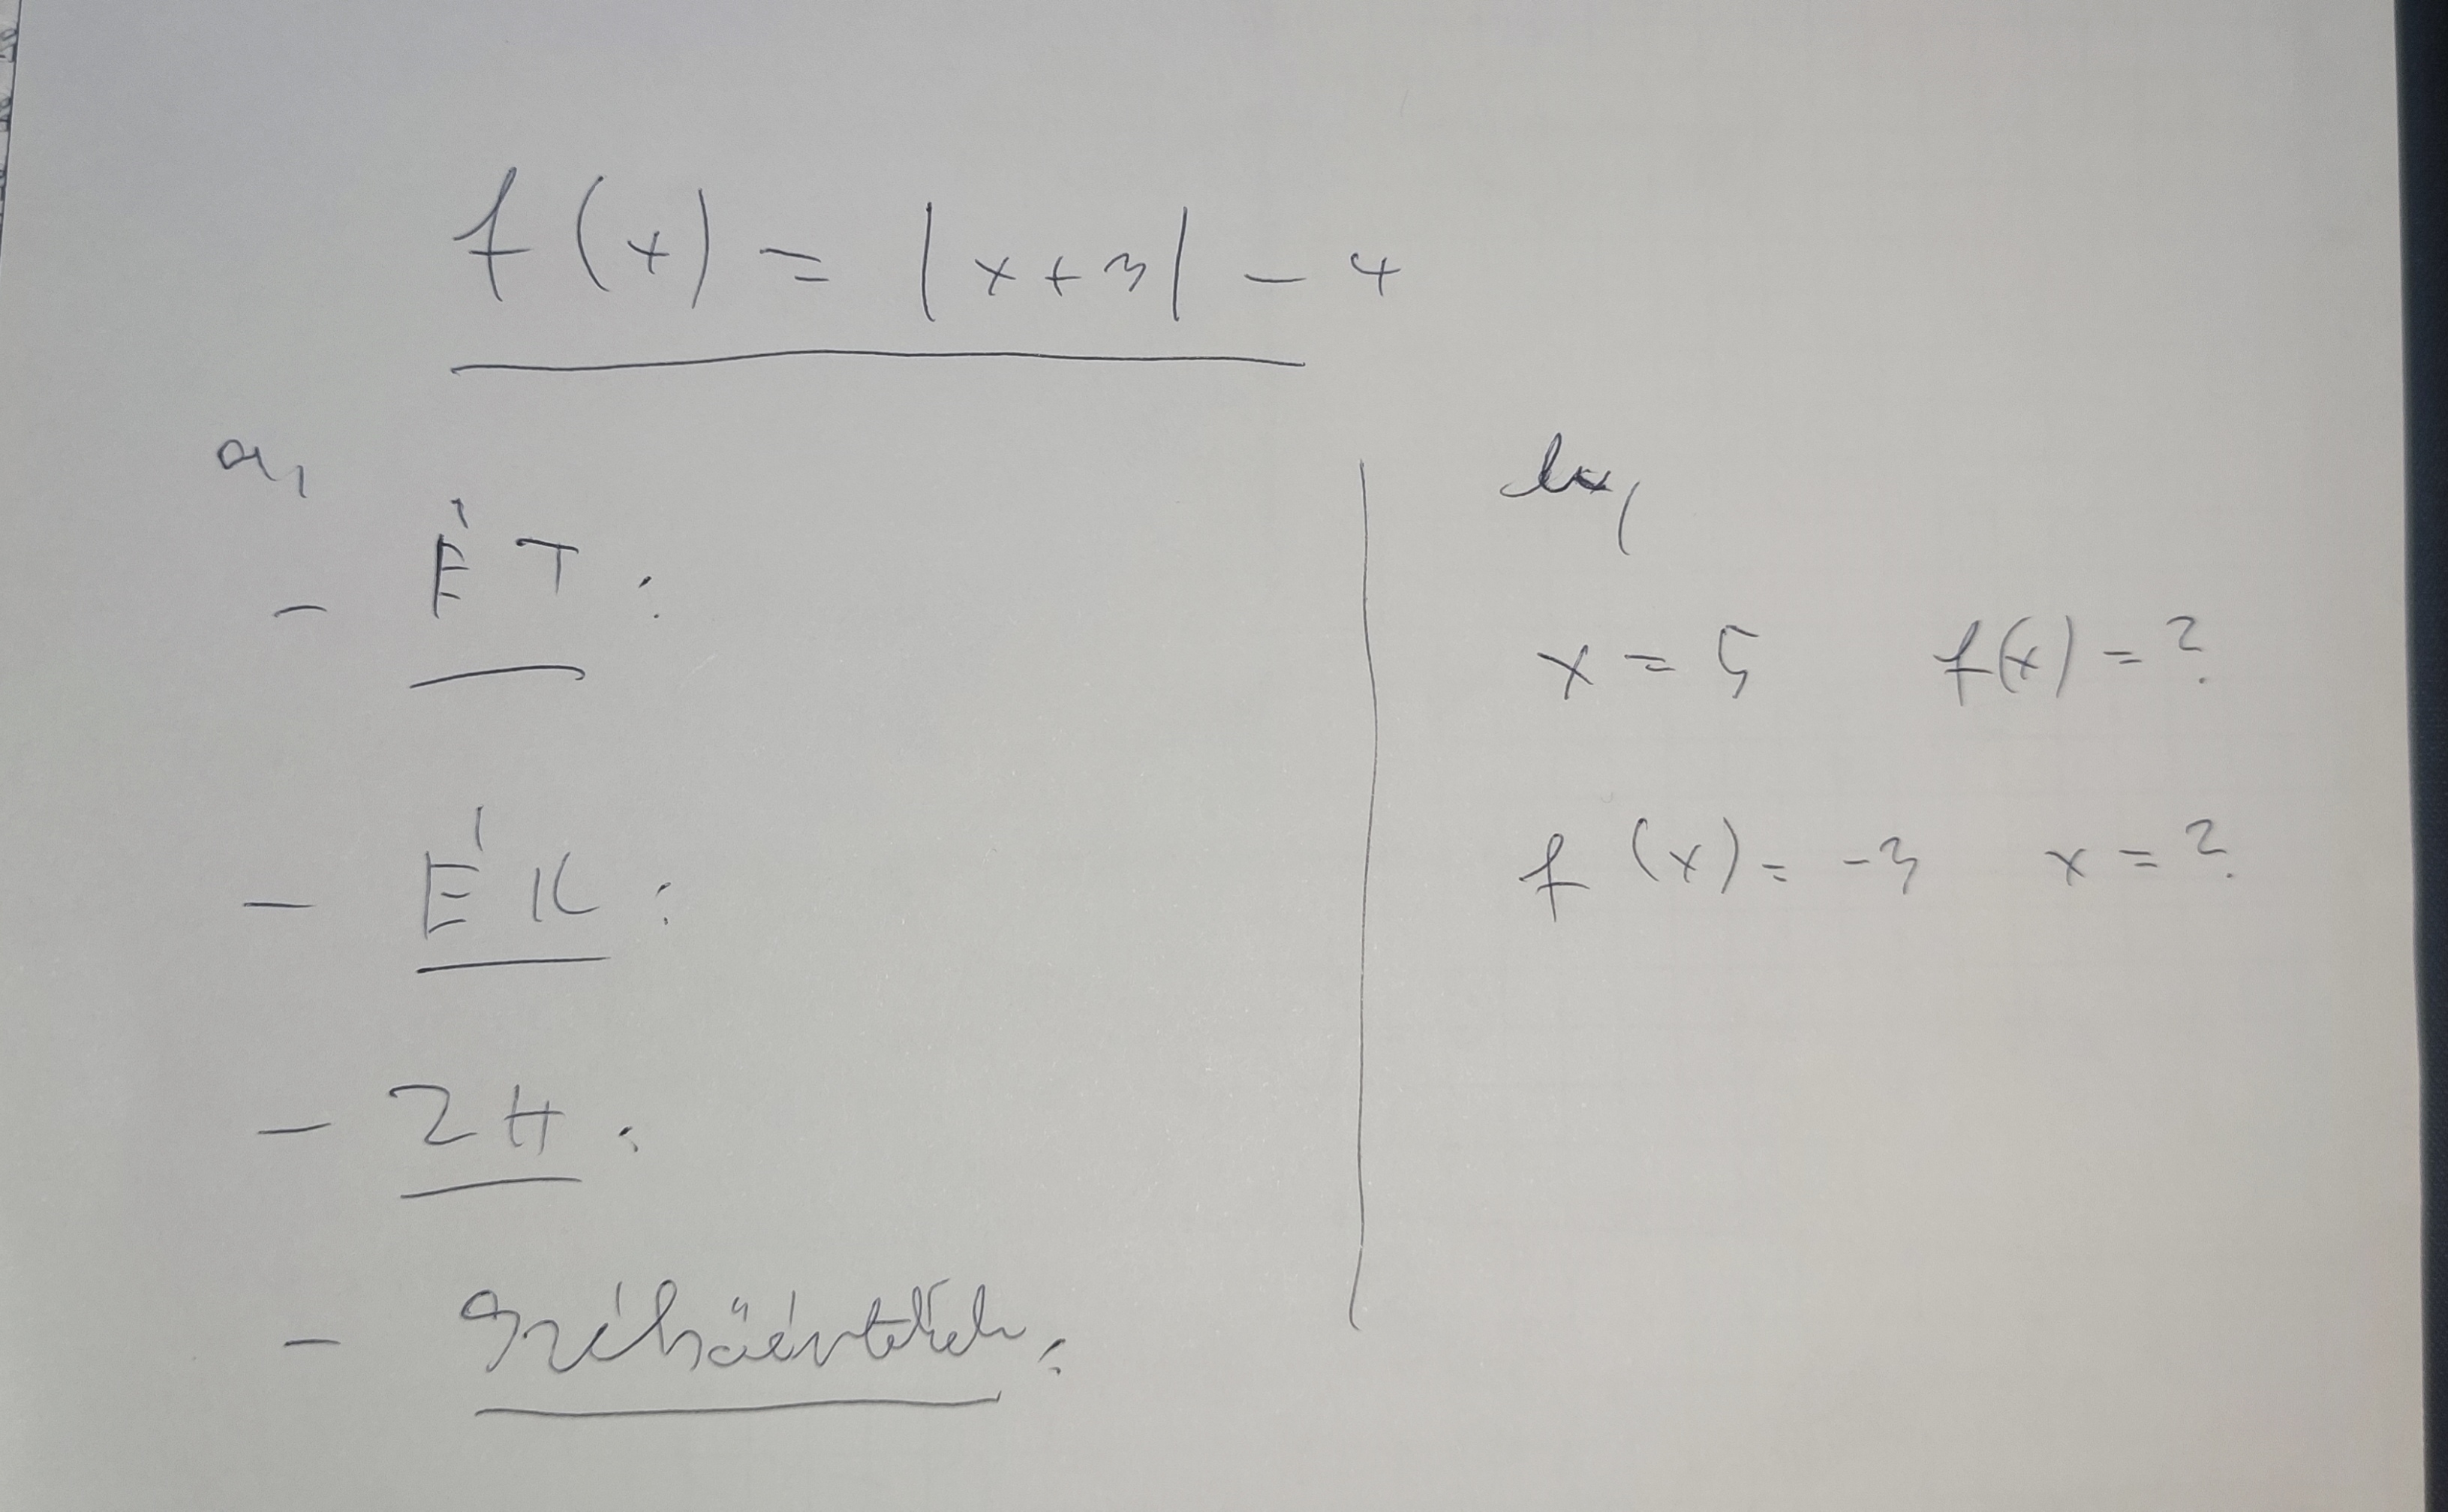 f(x) = |x+3| - 4
a,
- ÉT:
- ÉK:
- ZH:
- Szélsőérték:
b,
x = 5 f(x) = ?
f(x) = -3 x = ?